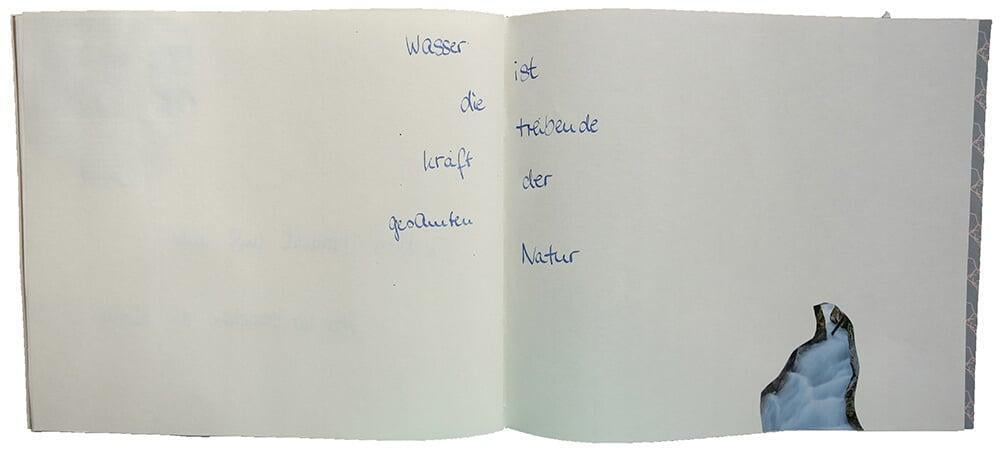 Wasser
ist
die
treibende
kraft
der
gesamten
Natur